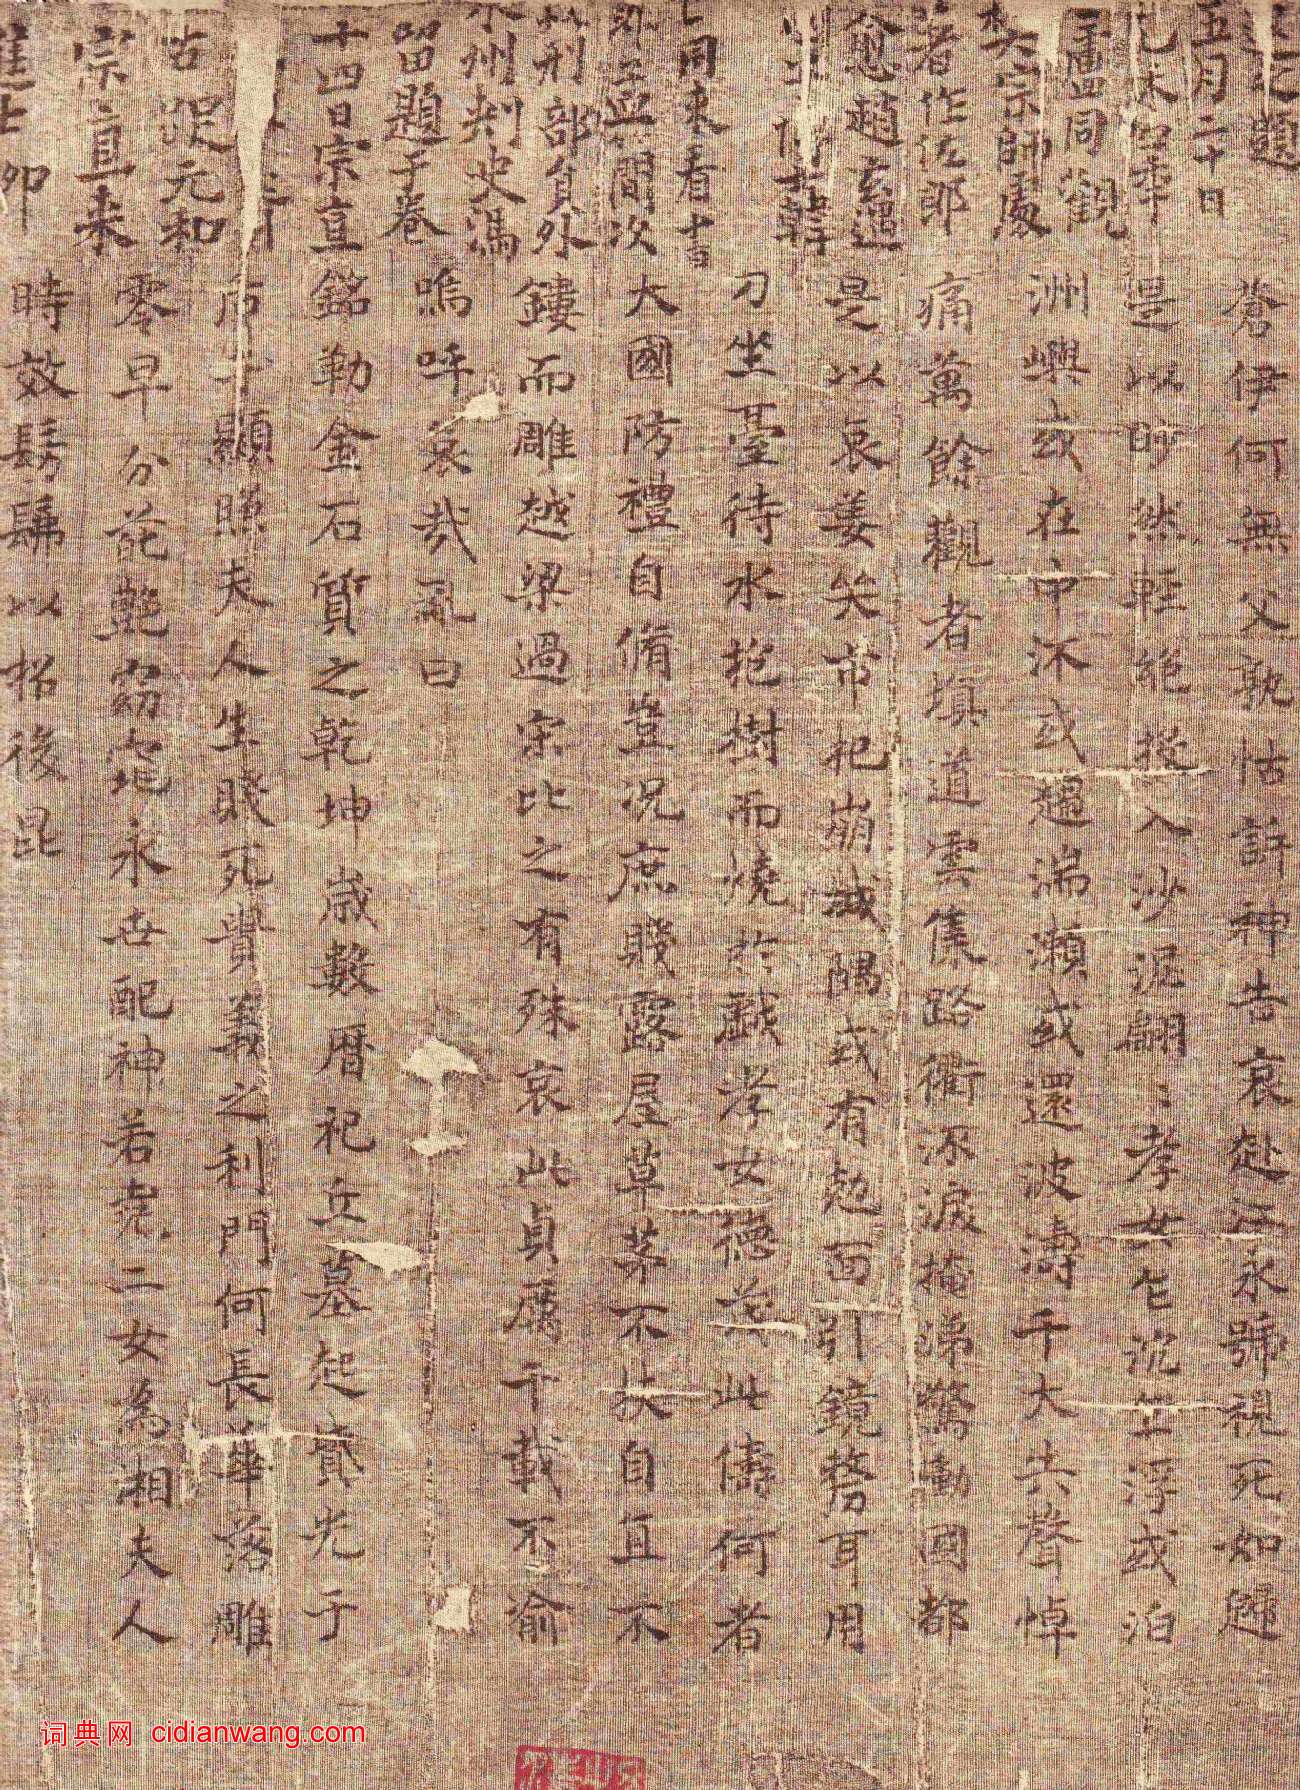 之題
五月二十日
年
盧同觀
大宗師處
著作佐郎
愈趙玄遇
韓
同来看
間次
刑部員外
州刾史馮
留題于卷
十四日宗直
況元和
宗直来
蒼伊何無父孰怙訴神告哀赴江永號視死如歸
是以眇然輕絶投入沙泥翩〻孝女乍沉乍浮或泊
洲嶼或在中流或趨湍瀨或還波濤千夫失聲悼
痛萬餘觀者填道雲集路衢流淚掩涕驚動國都
是以哀姜哭市杞崩城隅或有尅面引鏡剺耳用
刀坐臺待水抱樹而燒於戲孝女德茂此儔何者
大國防禮自脩豈況庶賤露屋草茅不扶自直不
鏤而雕越梁過宋比之有殊哀此貞厲千載不渝
嗚呼哀哉亂曰
銘勒金石質之乾坤歲數曆祀丘墓起墳光于
后土顯照夫人生賤死貴義之利門何長華落雕
零早分葩艷窈窕永世配神若堯二女為湘夫人
時效髣髴以招後昆
词典网 cidianwang.com